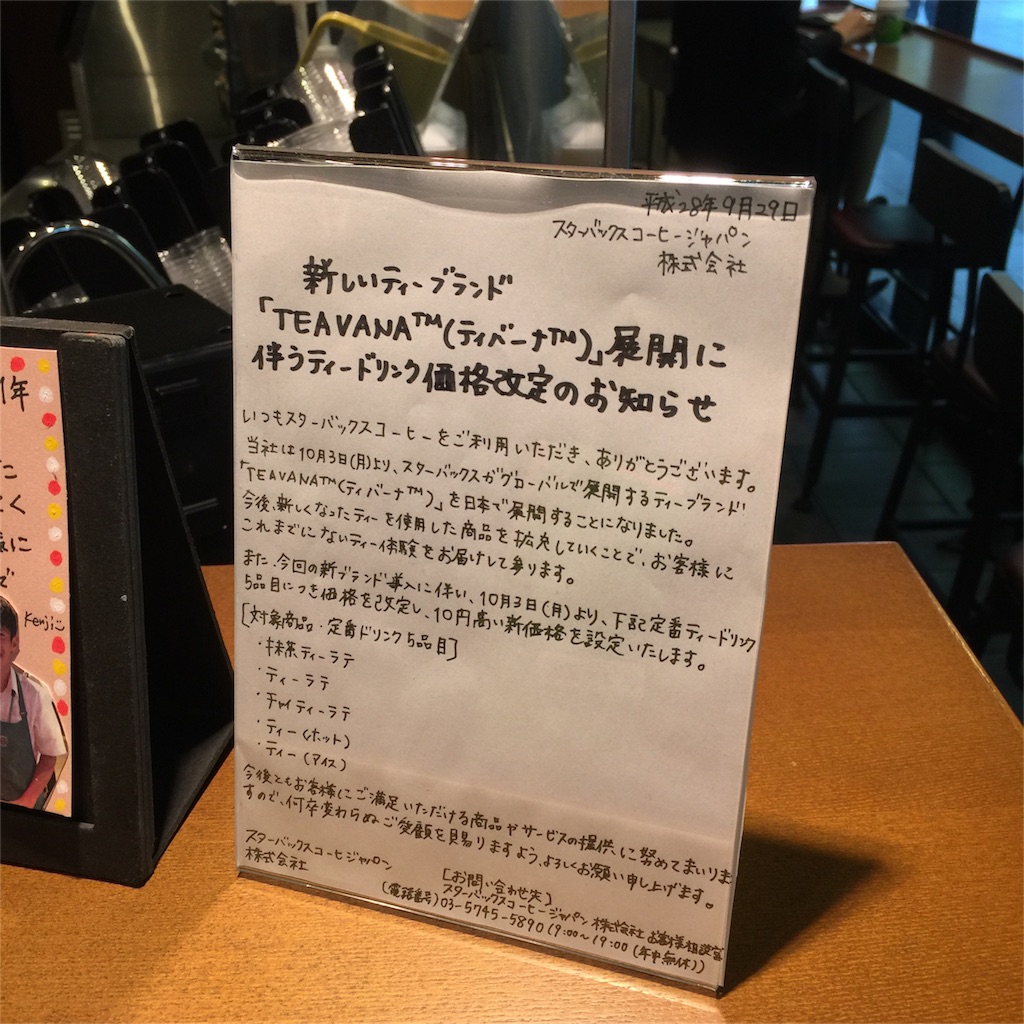 平成28年9月29日
スターバックスコーヒージャパン
株式会社
新しいティーブランド
「TEAVANA™(ティバーナ™)」展開に
伴うティードリンク価格改定のお知らせ
いつもスターバックスコーヒーをご利用いただき、ありがとうございます。
当社は10月3日(月)より、スターバックスがグローバルで展開するティーブランド
「TEAVANA™(ティバーナ™)」を日本で展開することになりました。
今後、新しくなったティーを使用した商品を拡充していくことで、お客様に
これまでにないティー体験をお届けして参ります。
また、今回の新ブランド導入に伴い、10月3日(月)より、下記定番ティードリンク
5品目につき価格を改定し、10円高い新価格を設定いたします。
[対象商品・定番ドリンク5品目]
・抹茶ティーラテ
・ティーラテ
・チャイティーラテ
・ティー(ホット)
・ティー(アイス)
今後ともお客様にご満足いただける商品やサービスの提供に努めてまいりま
すので、何卒変わらぬご愛顧を賜りますよう、よろしくお願い申し上げます。
スターバックスコーヒージャパン
株式会社
[お問い合わせ先]
スターバックスコーヒージャパン 株式会社 お客様相談室
(電話番号) 03-5745-5890 (9:00~19:00 (年中無休))
年
た
く
に
で
Kenji